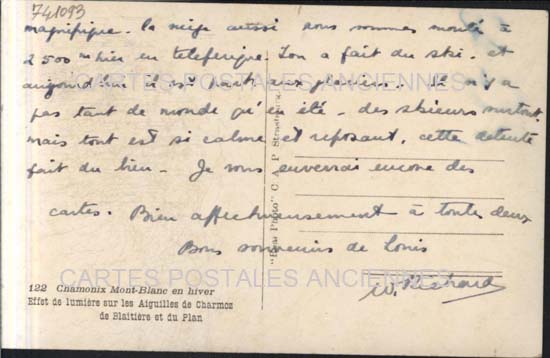 741093
magnifique. la neige aussi nous sommes monté à
2500 m hier en teleferique. Lon a fait du ski. et
aujourd'hui il est parti aux plus
Il n'y a
pas tant de monde qu'en été - des skieurs surtout,
mais tout est si calme et reposant, cette detente
fait du bien. - Je vous enverrai encore des
cartes. Bien affectueusement à toute deux
Bons souvenirs de Louis
CARTES POSTALES ANCIENNES
"Real Photo" C A P Strasbourg
122 Chamonix Mont-Blanc en hiver
Effet de lumière sur les Aiguilles de Charmoz
de Blaitière et du Plan
CARTES POSTALES ANCIENNES